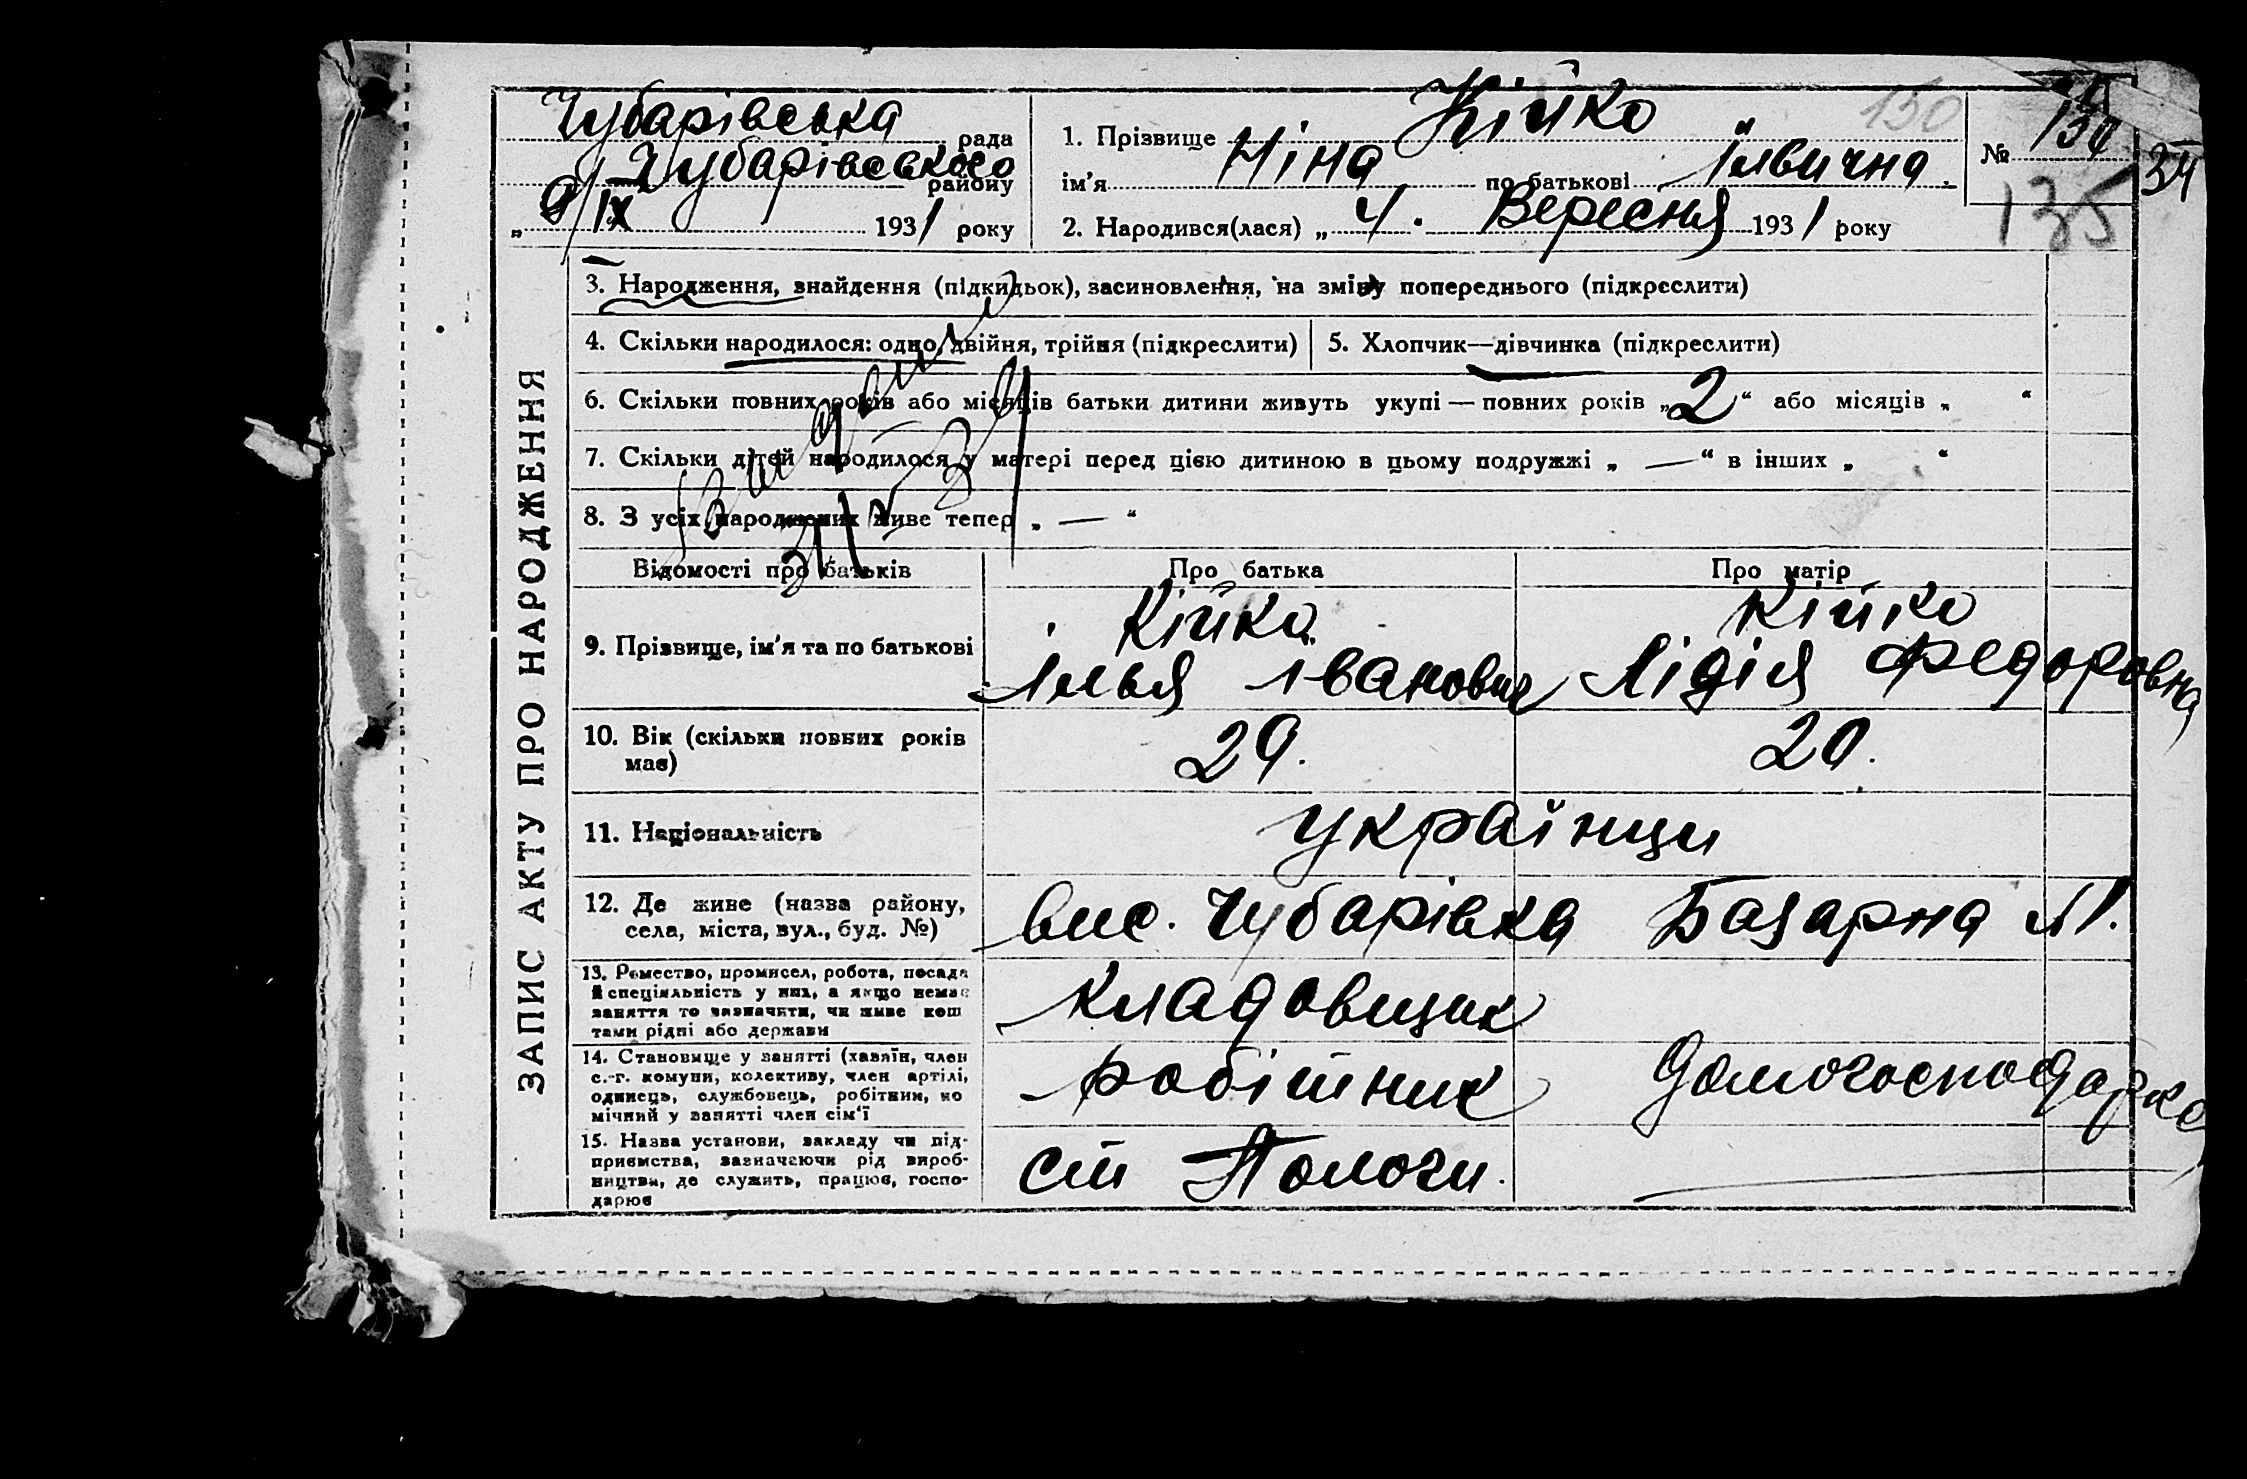 Чубарівська рада
Чубарівського району
9/IX 1931 року
1. Прізвище Кійко
ім'я Ніна по батькові Ілвична
2. Народився(лася) „ 4. Вересня 1931 року
150
№ 134
34
135
ЗАПИС АКТУ ПРО НАРОДЖЕННЯ
3. Народження, знайдення (підкидьок), засиновлення, на зміну попереднього (підкреслити)
4. Скільки народилося: одно, двійня, трійня (підкреслити)
5. Хлопчик—дівчинка (підкреслити)
6. Скільки повних років або місяців батьки дитини живуть укупі — повних років „2“ або місяців „ “
7. Скільки дітей народилося у матері перед цією дитиною в цьому подружжі „ — “ в інших „ “
8. З усіх народжених живе тепер „ — “
Відомості про батьків
Про батька
Про матір
9. Прізвище, ім'я та по батькові
Кійко
Ілья Іванович
Кійко
Лідія Федоровна
10. Вік (скільки повних років
має)
29.
20.
11. Національність
Українци
12. Де живе (назва району,
села, міста, вул., буд. №)
вис. Чубарівка Базарна
13. Ремество, промисел, робота, посада
й спеціяльність у них, а якщо немає
заняття то зазначити, чи живе кош
тами рідні або держави
Кладовщик
14. Становище у занятті (хазяїн, член
с.-г. комуни, колективу, член артілі,
одинець, службовець, робітник, по
мічний у занятті член сім'ї
робітник
домогосподарка
15. Назва установи, закладу чи під-
приємства, зазначаючи рід вироб-
ництва, де служить, працює, госпо-
дарює
ст Пологи.